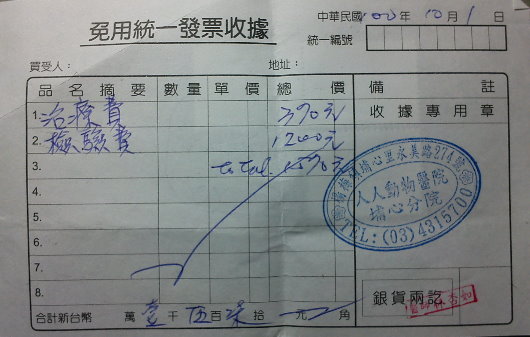 免用統一發票收據
中華民國100年10月1日
統一編號
買受人：
地址：
品名摘要 數量 單價 總價 備註
1. 治療費 390元
2. 檢驗費 1200元
3. total 1590元
4.
5.
6.
7.
8.
收據專用章
埔心里永美路274號
人人動物醫院
埔心分院
TEL:(03)4315700
銀貨兩訖
合計新台幣 萬壹千伍百 拾 元 角